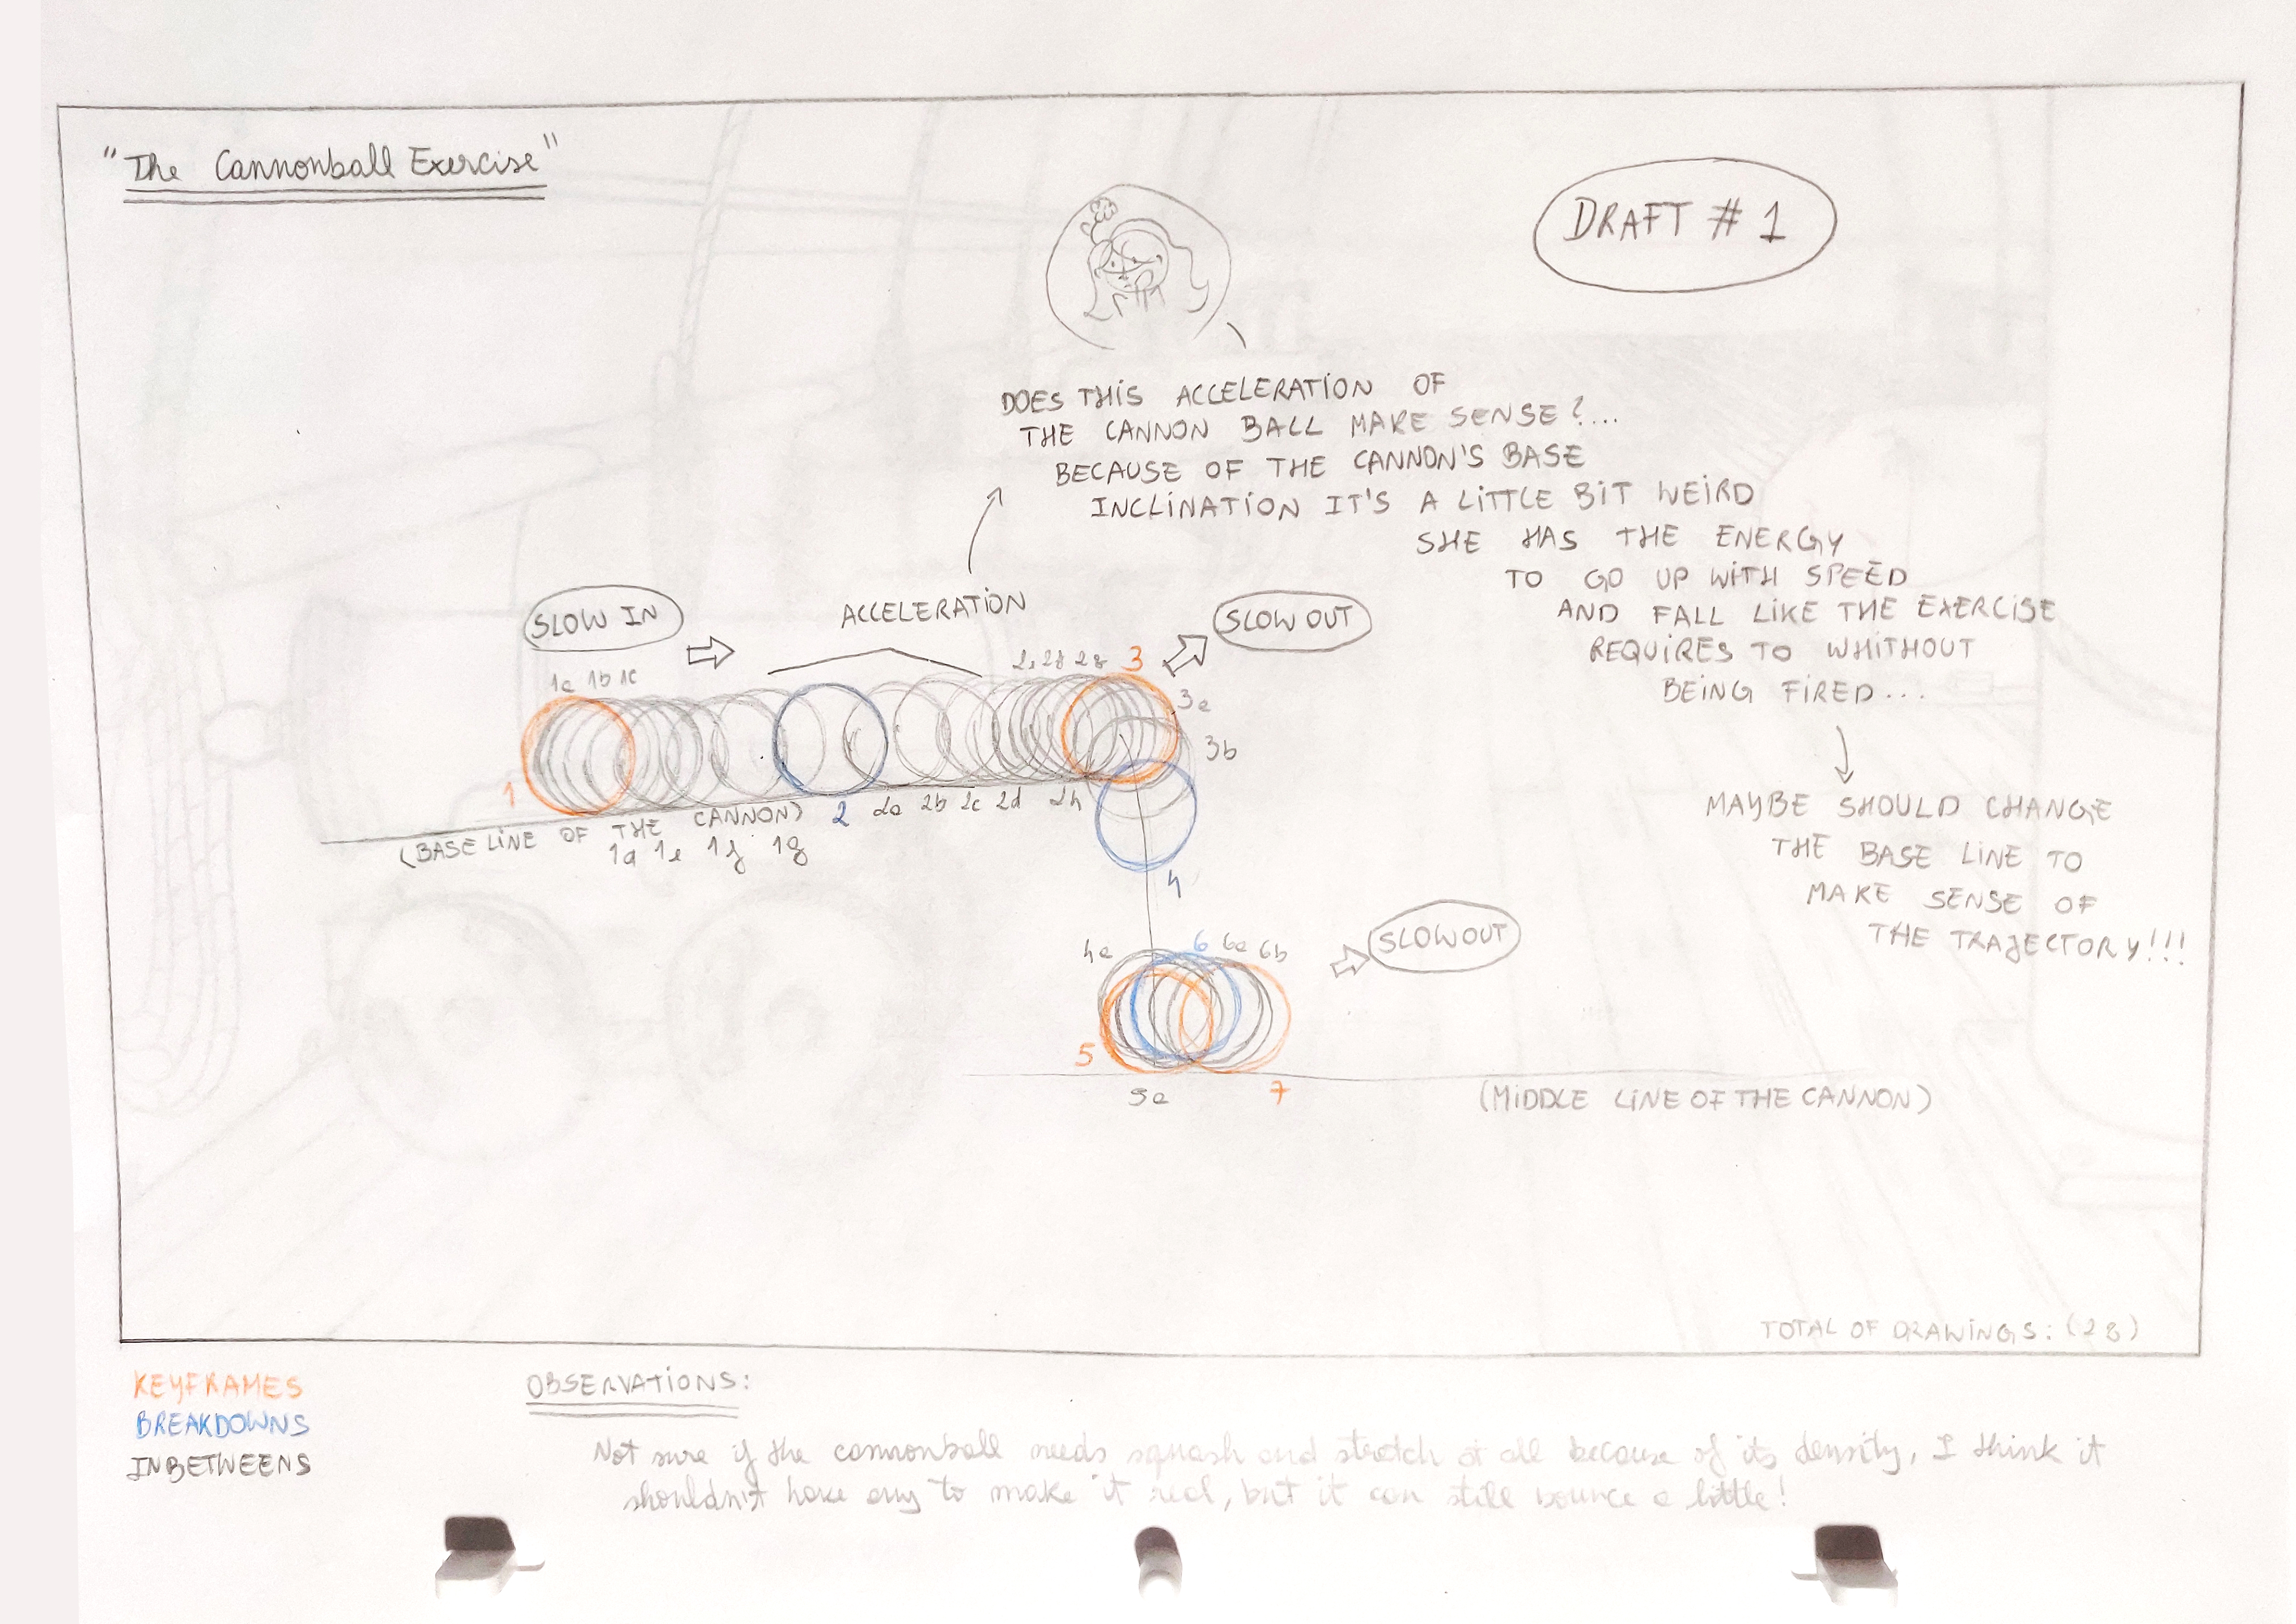 "The Cannonball Exercise"
DRAFT # 1
DOES THIS ACCELERATION OF
THE CANNON BALL MAKE SENSE?...
BECAUSE OF THE CANNON'S BASE
INCLINATION IT'S A LITTLE BIT WEIRD
SHE HAS THE ENERGY
TO GO UP WITH SPEED
AND FALL LIKE THE EXERCISE
REQUIRES TO WHITHOUT
BEING FIRED...
MAYBE SHOULD CHANGE
THE BASE LINE TO
MAKE SENSE OF
THE TRAJECTORY!!!
SLOW IN
ACCELERATION
SLOW OUT
1a 1b 1c
3
3a
3b
1
(BASE LINE OF THE CANNON)
2 2a 2b 2c 2d 2h
1e 1f 1g
4
SLOW OUT
4a 6 6a 6b
5
5a
7
(MIDDLE LINE OF THE CANNON)
TOTAL OF DRAWINGS: (28)
KEYFRAMES
BREAKDOWNS
INBETWEENS
OBSERVATIONS:
Not sure if the cannonball needs squash and stretch at all because of its density, I think it
shouldn't have any to make it real, but it can still bounce a little!